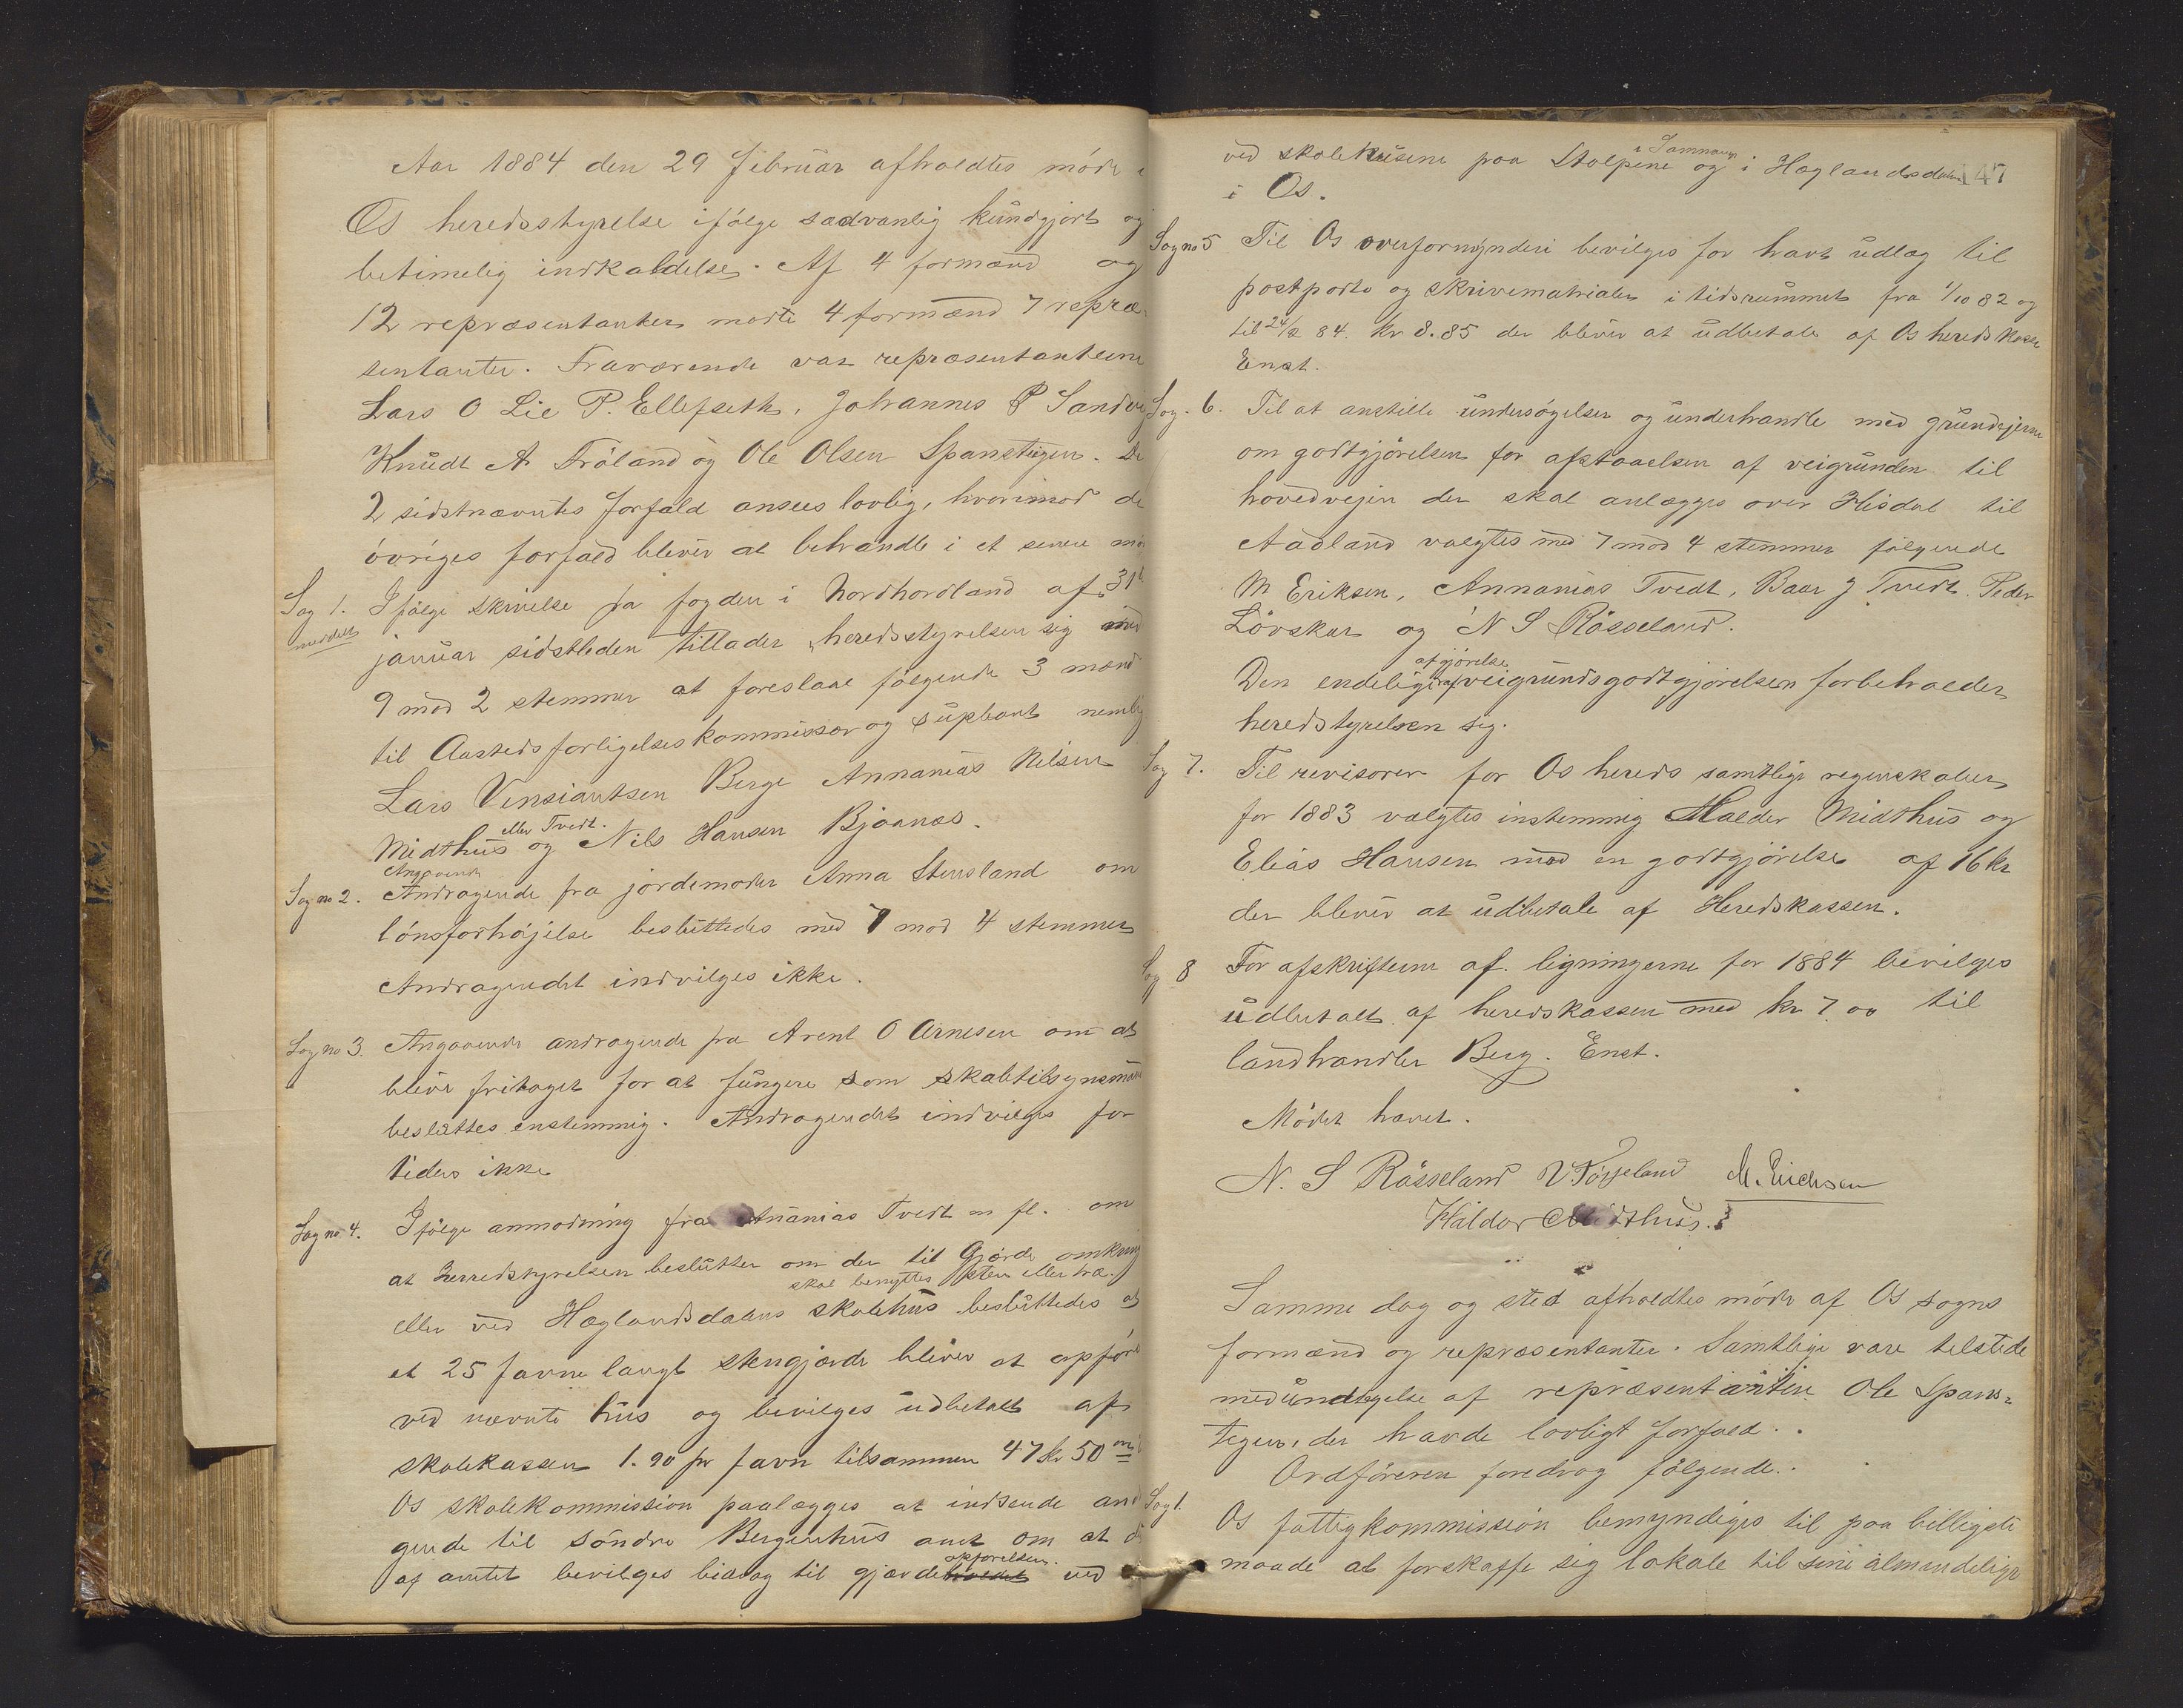 Aar 1884 den 29 februar afholdtes möde i
Os heredsstyrelse ifölge sædvanlig kundgjort og
betimelig indkaldelse. Af 4 formænd og
12 repræsentanter mødte 4 formænd 7 repræ-
sentanter. Fraværende var repræsentanterne
Lars O Lie P. Ellefseth, Johannes P Sandvig
Knudt A Fröland og Ole Olsen Spanstigen. De
2 sidstnævntes forfald ansees lovlig, hvorimod de
övriges forfald bliver at behandle i et senere möde
Sag 1. Ifölge skrivelse fra fogden i Nordhordland af 31te
meddelt
januar sidstleden tillader heredsstyrelsen sig med
9 mod 2 stemmer at foreslaae fölgende 3 mænd
til Aastedsforligelseskommissær og supleant nemlig
Lars Vinsiantsen Berge Annanias Nilsen
eller Tvedt.
Midthus og Nils Hansen Bjøanæs.
Angaaende
Sag no 2. Andragende fra jordemoder Anna Stensland om
lönsforhöjelse besluttedes med 7 mod 4 stemmer
Andragendet indvilges ikke.
Sag no 3. Angaaende andragende fra Arent O Arnesen om at
blive fritaget for at fungere som skoletilsynsmand
besluttes enstemmig. Andragendet indvilges for
tiden ikke
Sag no 4. Ifölge anmodning fra Ananias Tvedt m fl. om
at Herredstyrelsen beslutter om der til Gjærde omkring
skal benyttes sten eller træ.
eller ved Hæglandsdalens skolehus besluttedes at
et 25 favne langt stengjærde bliver at opföre
ved nævnte hus og bevilges udbetalt af
skolekassen 1.90 pr favn tilsammen 47 kr 50 øre
Os skolekommission paalægges at indsende andra
gende til söndre Bergenhus amt om at der
opförelsen.
af amtet bevilges bidrag til gjærdeholdet ved
147
i Samnanger
ved skolehusene paa Stolpene og i Hæglandsdalen
i Os.
Sag no 5 Til Os overformynderi bevilges for havt udlæg til
postporto og skrivematrialer i tidsrummet fra 1/10 82 og
til 24/2 84. kr 8.85 der bliver at udbetale af Os hereds kasse
Enst.
Sag. 6. Til at anstille undersøgelser og underhandle med grundejerne
om godtgjörelsen for afstaaelsen af veigrunden til
hovedvejen der skal anlægges over Hisdal til
Aadland valgtes med 7 mod 4 stemmer fölgende
M Eriksen, Annanias Tvedt, Baar J Tvedt. Peder
Lövskar og N S Rösseland.
afgjörelse
Den endelige af veigrundsgodtgjörelsen forbeholder
heredstyrelsen sig.
Sag 7. Til revisorer for Os hereds samtlige regnskaber
for 1883 valgtes instemmig Haldor Midthus og
Elias Hansen mod en godtgjörelse af 16 kr
der bliver at udbetale af Heredskassen.
Sag 8 For afskrifterne af ligningerne for 1884 bevilges
udbetalt af heredskassen med kr 7.00 til
landhandler Berg. Enst.
Mödet hævet.
N. S Rösseland V Tösseland M. Erichsen
Haldor Midthus.
Samme dag og sted afholdtes möde af Os sogns
formænd og repræsentanter. Samtlige vare tilstede
med undtagelse af repræsentanten Ole Spans-
tigen, der havde lovligt forfald.
Ordföreren foredrog fölgende.
Sag 1. Os fattigkommission bemyndiges til paa billigste
maade at forskaffe sig lokale til sine almindelige